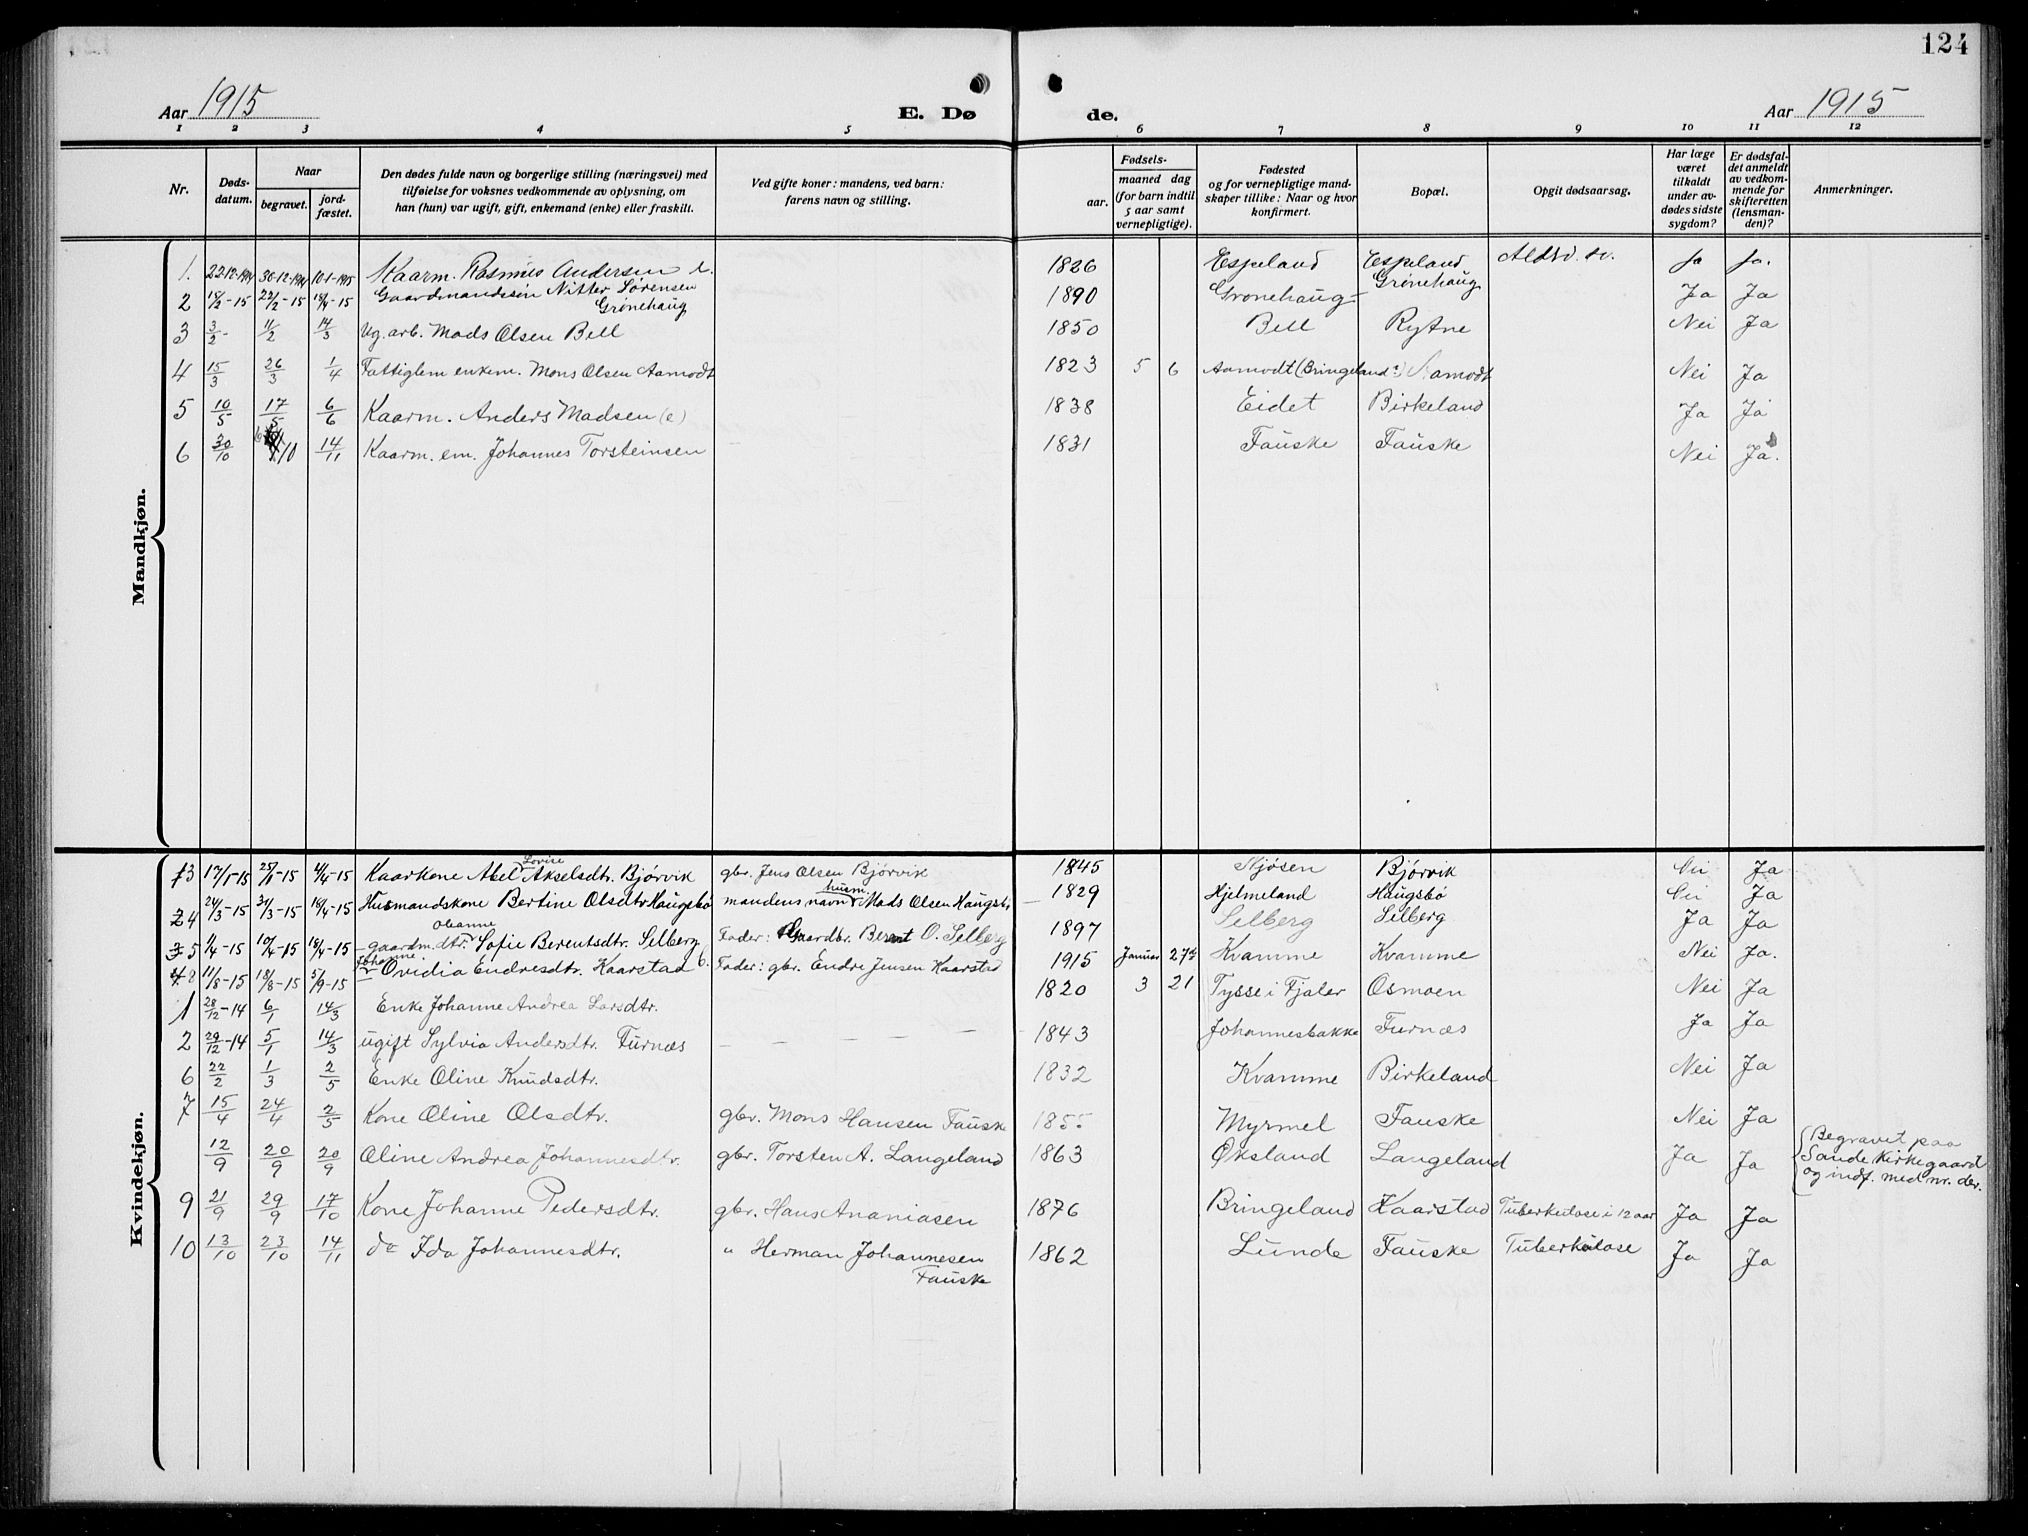 124
Aar 1915
E. Dø de.
Aar 1915
1 2 3 4 5 6 7 8 9 10 11 12
Nr.
Døds-
datum.
Naar
begravet.
jord-
fæstet.
Den dødes fulde navn og borgerlige stilling (næringsvei) med
tilføielse for voksnes vedkommende av oplysning, om
han (hun) var ugift, gift, enkemand (enke) eller fraskilt.
Ved gifte koner: mandens, ved barn:
farens navn og stilling.
Fødsels-
aar.
maaned dag
(for barn indtil
5 aar samt
vernepligtige).
Fødested
og for vernepligtige mand-
skaper tillike: Naar og hvor
konfirmert.
Bopæl.
Opgit dødsaarsag.
Har læge
været
tilkaldt
under av-
dødes sidste
sygdom?
Er dødsfal-
det anmeldt
av vedkom-
mende for
skifteretten
(lensman-
den)?
Anmerkninger.
Mandkjøn.
1. 22-12-1914 30-12-1914 10-1-1915 Kaarm. Rasmus Andersen e. 1826 Espeland Espeland Ja Ja.
2 15/2-15 22/2-15 18/4-15 Gaardmandssøn Nitter Sørensen Grønehaug 1890 Grønehaug Grønehaug Ja Ja
3 3/2- 11/2 14/3 Ug. arb. Mads Olsen Bell 1850 Bell Rytne Nei Ja
4 15/3 26/3 1/4 Fattiglem enkem. Mons Olsen Aamodt 1823 5 6 Aamodt (Bringeland?) Aamodt Nei Ja
5 10/5 17/5 6/6 Kaarm. Anders Madsen (e) 1838 Eidet Birkeland Ja Ja
6 30/10 14/11 Kaarm. em. Johannes Torsteinsen 1831 Fauske Fauske Nei Ja.
Kvindekjøn.
3 17/1-15 25/1-15 4/4-15 Kaarkone Abel Lovise Akselsdtr. Bjørvik gbr. Jens Olsen Bjørvik 1845 Bjørvik Ja
4 24/3-15 31/3-15 18/4-15 Husmandskone Bertine Olsdtr Haugsbø mandens navn husm. Mads Olsen Haugsbø 1829 Hjelmeland Haugsbø Ja
5 1/4-15 10/4-15 18/4-15 gaardm.dtr. Oleanne Sofie Berentsdtr. Selberg Fader: Gaardbr. Berent O. Selberg 1897 Selberg Selberg Ja Ja
8 11/8-15 18/8-15 5/9-15 Johanne Ovidia Endresdtr. Kaarstad Fader: gbr. Endre Jensen Kaarstad 1915 Januar 27de Kvamme Kvamme Nei Ja.
1 28/12-14 6/1 14/3 Enke Johanne Andrea Larsdtr. 1820 3 21 Tysse i Fjaler Osmoen Nei Ja
2 29/12-14 5/1 14/3 ugift Sylvia Andersdtr. Furnæs – – – – – 1843 Johannesbakke Furnæs Ja Ja
6 22/2 1/3 2/5 Enke Oline Knudsdtr. 1832 Kvamme Birkeland Nei Ja
7 15/4 24/4 2/5 Kone Oline Olsdtr. gbr. Mons Hansen Fauske 1855 Myrmel Fauske Nei Ja
12/9 20/9 20/9 Oline Andrea Johannesdtr. gbr. Torsten A. Langeland 1863 Øksland Langeland Ja Ja Begravet paa
Sande Kirkegaard
og indf. med nr. der.
9 21/9 29/9 17/10 Kone Johanne Pedersdtr. gbr. Hans Ananiasen 1876 Bringeland Kaarstad Tuberkulose i 12 aar Ja Ja
10 13/10 23/10 14/11 do Ida Johannesdtr. " Herman Johannesen Fauske 1862 Lunde Fauske Tuberkulose Ja Ja